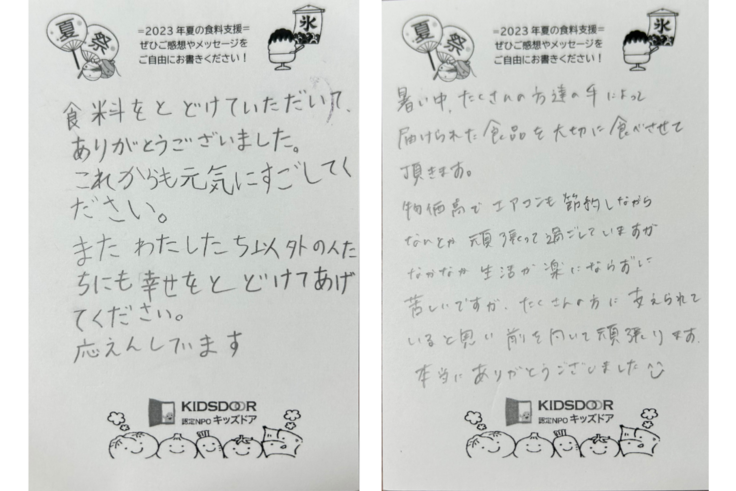 夏
祭
=2023年夏の食料支援=
ぜひご感想やメッセージを
ご自由にお書きください！
氷
食料をとどけていただいて、
ありがとうございました。
これからも元気にすごしてく
ださい。
また わたしたち以外の人た
ちにも幸せをとどけてあげ
てください。
応えんしています
KIDSDOOR
認定NPO キッズドア
夏
祭
=2023年夏の食料支援=
ぜひご感想やメッセージを
ご自由にお書きください！
氷
暑い中、たくさんの方達の手によって
届けられた食品を大切に食べさせて
頂きます。
物価高でエアコンも節約しながら
なんとか頑張って過ごしていますが
なかなか生活が楽にならずに
苦しいですが、たくさんの方に支えられて
いると思い前を向いて頑張ります。
本当にありがとうございました
KIDSDOOR
認定NPO キッズドア